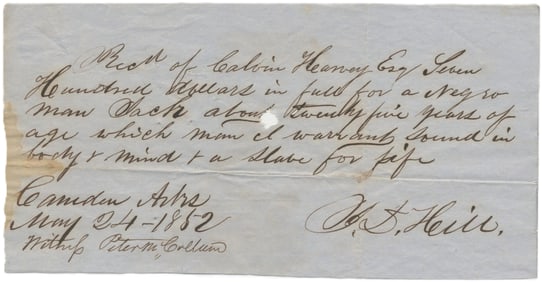 Recd of Calvin Harvey Esq Seven
Hundred dollars in full for a Negro
man Jack about twenty five years of
age which man I warrant sound in
body & mind & a slave for life
Camden Arks
May 24-1852
Witness Peter McCollum
Hill.